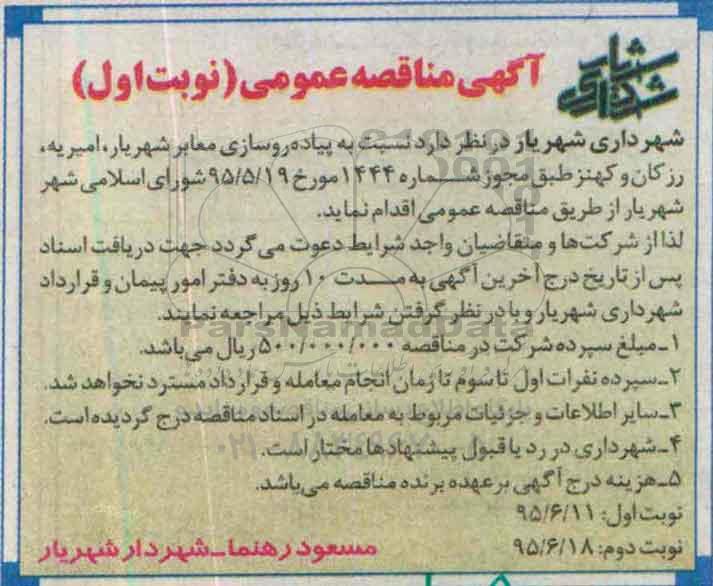 شهرداری شهریار
آگهی مناقصه عمومی (نوبت اول)
شهرداری شهریار در نظر دارد نسبت به پیاده‌روسازی معابر شهریار، امیریه،
رزکان و کهنز طبق مجوز شماره ۱۴۴۴ مورخ ۹۵/۵/۱۹ شورای اسلامی شهر
شهریار از طریق مناقصه عمومی اقدام نماید.
لذا از شرکت‌ها و متقاضیان واجد شرایط دعوت می‌گردد جهت دریافت اسناد
پس از تاریخ درج آخرین آگهی به مدت ۱۰ روز به دفتر امور پیمان و قرارداد
شهرداری شهریار و با در نظر گرفتن شرایط ذیل مراجعه نمایند.
ParsNamadData
۱ـ مبلغ سپرده شرکت در مناقصه ۵۰۰/۰۰۰/۰۰۰ ریال می‌باشد.
۲ـ سپرده نفرات اول تا سوم تا زمان انجام معامله و قرارداد مسترد نخواهد شد.
۳ـ سایر اطلاعات و جزئیات مربوط به معامله در اسناد مناقصه درج گردیده است.
۴ـ شهرداری در رد یا قبول پیشنهادها مختار است.
۵ـ هزینه درج آگهی بر عهده برنده مناقصه می‌باشد.
نوبت اول: ۹۵/۶/۱۱
نوبت دوم: ۹۵/۶/۱۸
مسعود رهنما ـ شهردار شهریار